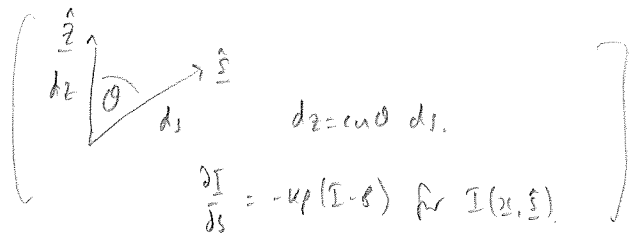 ẑ
dz
θ
ŝ
ds
dz = cosθ ds.
∂I/∂s = -κρ(I-B) for I(x, ŝ)